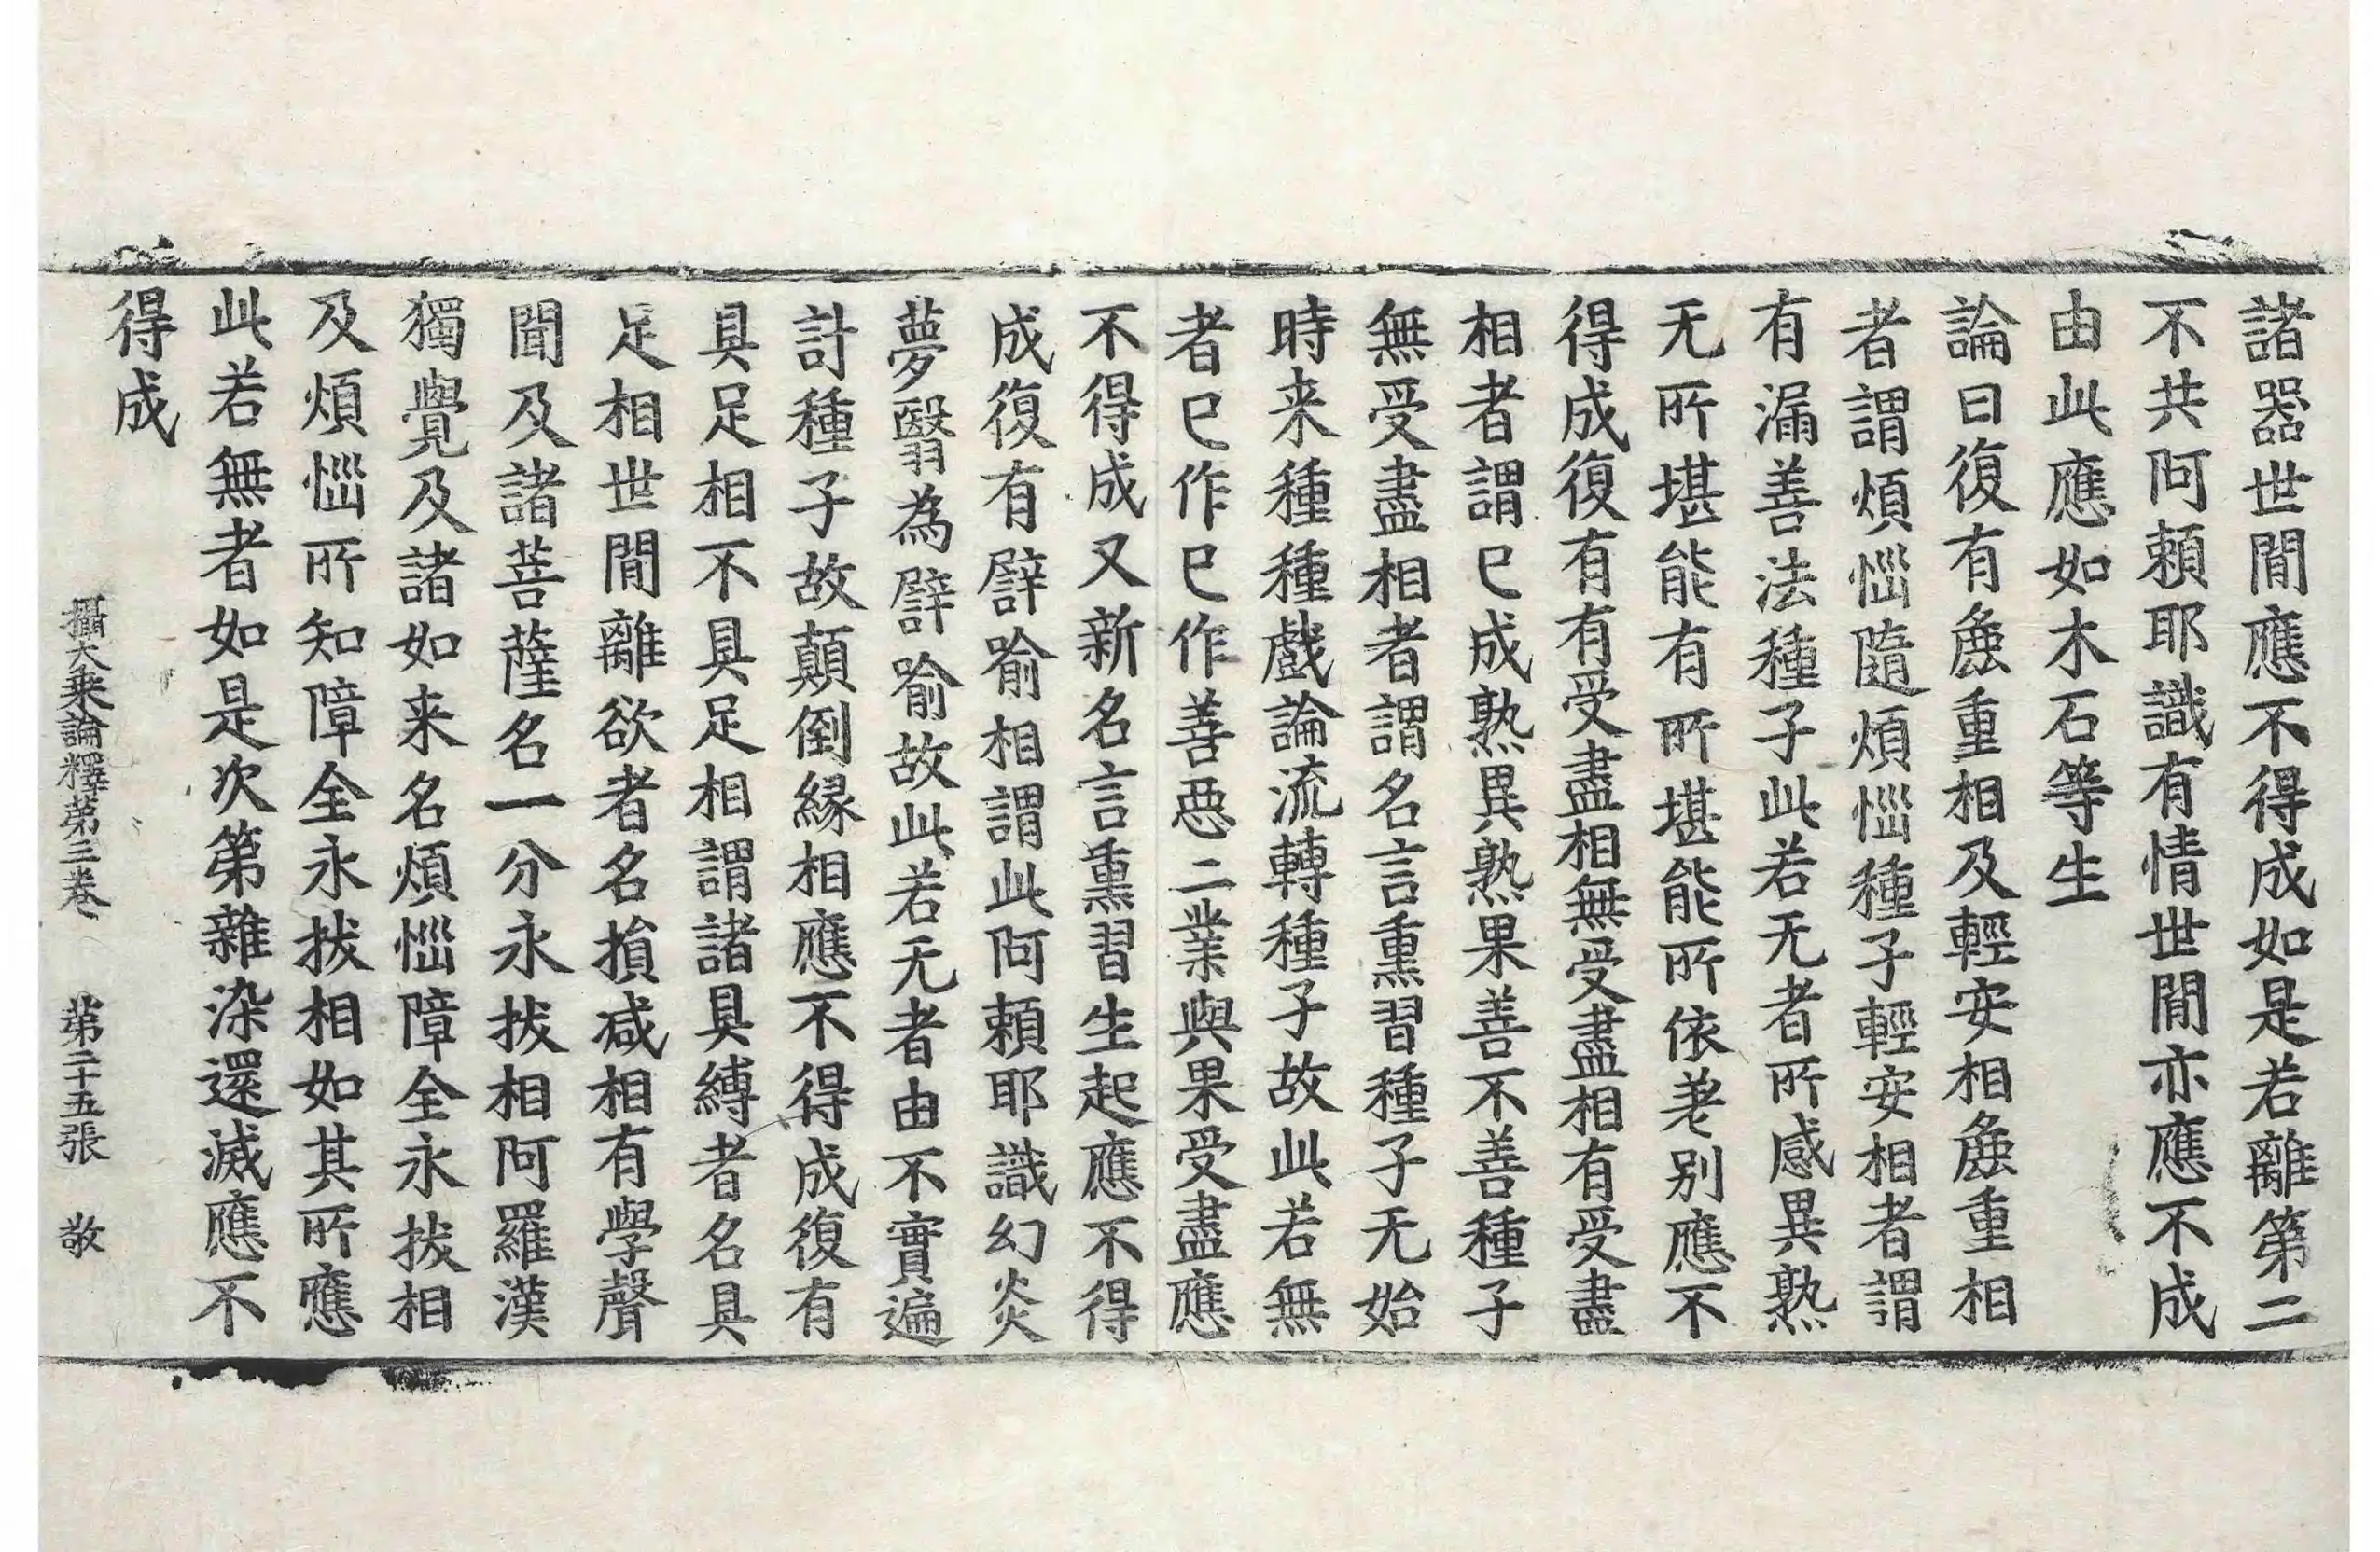 諸器世閒應不得成如是若離第二
不共阿頼耶識有情世閒亦應不成
由此應如木石等生
論曰復有麁重相及輕安相麁重相
者謂煩惱隨煩惱種子輕安相者謂
有漏善法種子此若无者所感異熟
无所堪能有所堪能所依差别應不
得成復有有受盡相無受盡相有受盡
相者謂已成熟異熟果善不善種子
無受盡相者謂名言熏習種子无始
時来種種戲論流轉種子故此若無
者已作已作善惡二業與果受盡應
不得成又新名言熏習生起應不得
成復有譬喻相謂此阿頼耶識幻炎
夢翳為譬喻故此若无者由不實遍
計種子故顛倒縁相應不得成復有
具足相不具足相謂諸具縛者名具
足相世閒離欲者名損减相有學聲
聞及諸菩薩名一分永拔相阿羅漢
獨覺及諸如来名煩惱障全永拔相
及煩惱所知障全永拔相如其所應
此若無者如是次第雜染還滅應不
得成
攝大乘論釋第三卷 第二十五張 敬